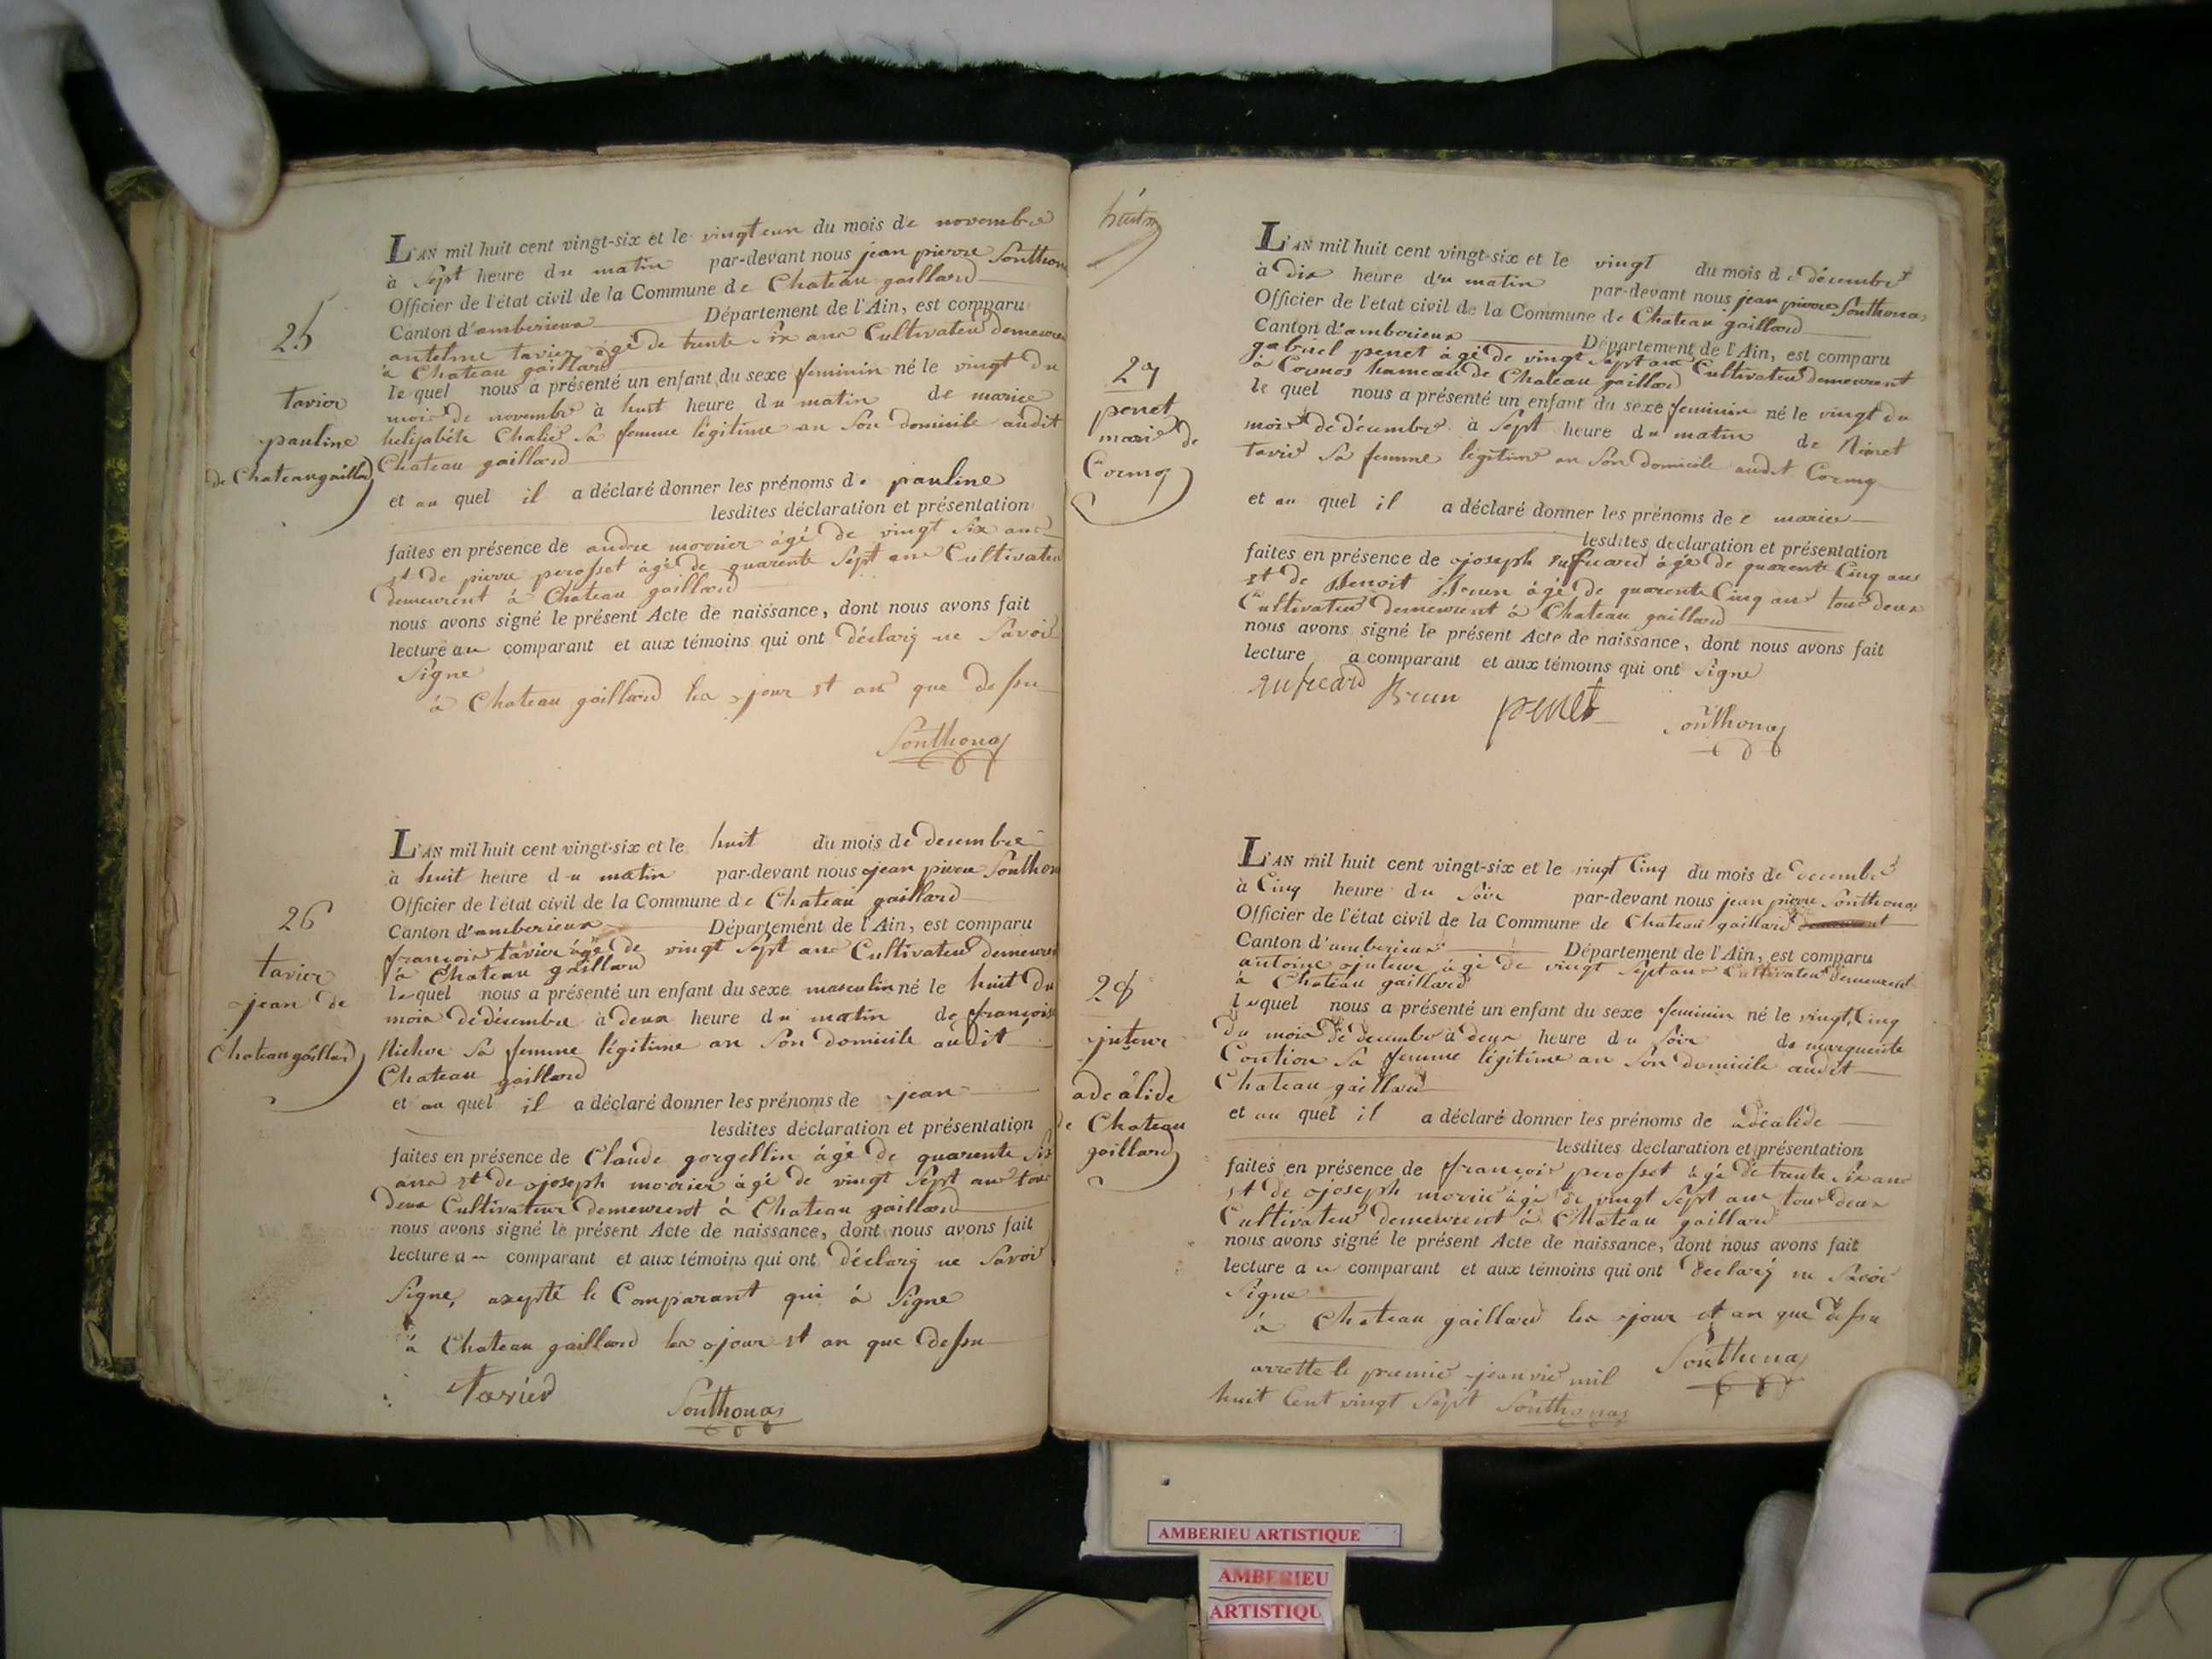 25
tavier
pauline
de Chateaugaillard
L'AN mil huit cent vingt-six et le vingt eun du mois de novembre
à Sept heure du matin par-devant nous jean pierre Sonthon
Officier de l'état civil de la Commune de Chateau gaillard
Canton d'amberieux Département de l'Ain, est comparu
antelme tavier âgé de trente Six ans Cultivateur demeurent
à Chateau gaillard
le quel nous a présenté un enfant du sexe feminin né le vingt du
mois de novembre à huit heure du matin de marie
helisabéte Chalié Sa femme légitime an Son domicile audit
Chateau gaillard
et au quel il a déclaré donner les prénoms de pauline
lesdites déclaration et présentation
faites en présence de andre morrier âgé de vingt Six ans
et de pierre perosset âgé de quarente Sept ans Cultivateu
demeurent à Chateau gaillard
nous avons signé le présent Acte de naissance, dont nous avons fait
lecture au comparant et aux témoins qui ont déclaré ne Savoir
Signe
à Chateau gaillard les jour et an que dessu
Sonthonas
26
tavier
jean de
Chateaugaillard
L'AN mil huit cent vingt-six et le huit du mois de decembre
à huit heure du matin par-devant nous jean pierre Sonthon
Officier de l'état civil de la Commune de Chateau gaillard
Canton d'amberieux Département de l'Ain, est comparu
francois tavier âgé de vingt Sept ans Cultivateur demeuren
à Chateau gaillard
le quel nous a présenté un enfant du sexe masculin né le huit du
mois de décembre à deux heure du matin de francoise
Sa femme légitime an Son domicile audit
Chateau gaillard
et au quel il a déclaré donner les prénoms de jean
lesdites déclaration et présentation
faites en présence de Claude gorgellin âgé de quarente Six
ans et de joseph morrier âgé de vingt Sept ans tous
deux Cultivateur demeurent à Chateau gaillard
nous avons signé le présent Acte de naissance, dont nous avons fait
lecture au comparant et aux témoins qui ont déclaré ne Savoir
Signe, axepté le Comparant qui à Signe
à Chateau gaillard les jour et an que dessu
Tavier Sonthonas
27
penet
marie de
Cormoz
L'AN mil huit cent vingt-six et le vingt du mois de décembre
à dix heure du matin par-devant nous jean pierre Sonthonas
Officier de l'état civil de la Commune de Chateau gaillard
Canton d'amberieux Département de l'Ain, est comparu
gabriel penet âgé de vingt Sept ans Cultivateur demeurent
à Cormos hameau de Chateau gaillard
le quel nous a présenté un enfant du sexe feminin né le vingt du
mois de décembre à Sept heure du matin de
tavier Sa femme légitime an Son domicile audit Cormoz
et au quel il a déclaré donner les prénoms de marie
lesdites déclaration et présentation
faites en présence de joseph âgé de quarente Cinq ans
et de Benoit Brun âgé de quarente Cinq ans tous deux
Cultivateur demeurent à Chateau gaillard
nous avons signé le présent Acte de naissance, dont nous avons fait
lecture a comparant et aux témoins qui ont Signe
Brun penet Sonthonas
28
juteur
adealide
de Chateau
gaillard
L'AN mil huit cent vingt-six et le vingt Cinq du mois de decembre
à Cinq heure du Soir par-devant nous jean pierre Sonthonas
Officier de l'état civil de la Commune de Chateau gaillard
Canton d'amberieux Département de l'Ain, est comparu
antoine juteur âgé de vingt Sept ans Cultivateur demeurent
à Chateau gaillard
le quel nous a présenté un enfant du sexe feminin né le vingt Cinq
du mois de decembre à deux heure du Soir de marguerite
Sa femme légitime an Son domicile audit
Chateau gaillard
et au quel il a déclaré donner les prénoms de adéalide
lesdites déclaration et présentation
faites en présence de françois perosset âgé de trente Six ans
et de joseph morrie âgé de vingt Sept ans tous deux
Cultivateur demeurent à Chateau gaillard
nous avons signé le présent Acte de naissance, dont nous avons fait
lecture au comparant et aux témoins qui ont déclaré ne Savoir
Signe
à Chateau gaillard les jour et an que dessu
Sonthonas
arrette le premie jeanvie mil
huit Cent vingt Sept Sonthonas
AMBERIEU ARTISTIQUE
AMBERIEU
ARTISTIQU